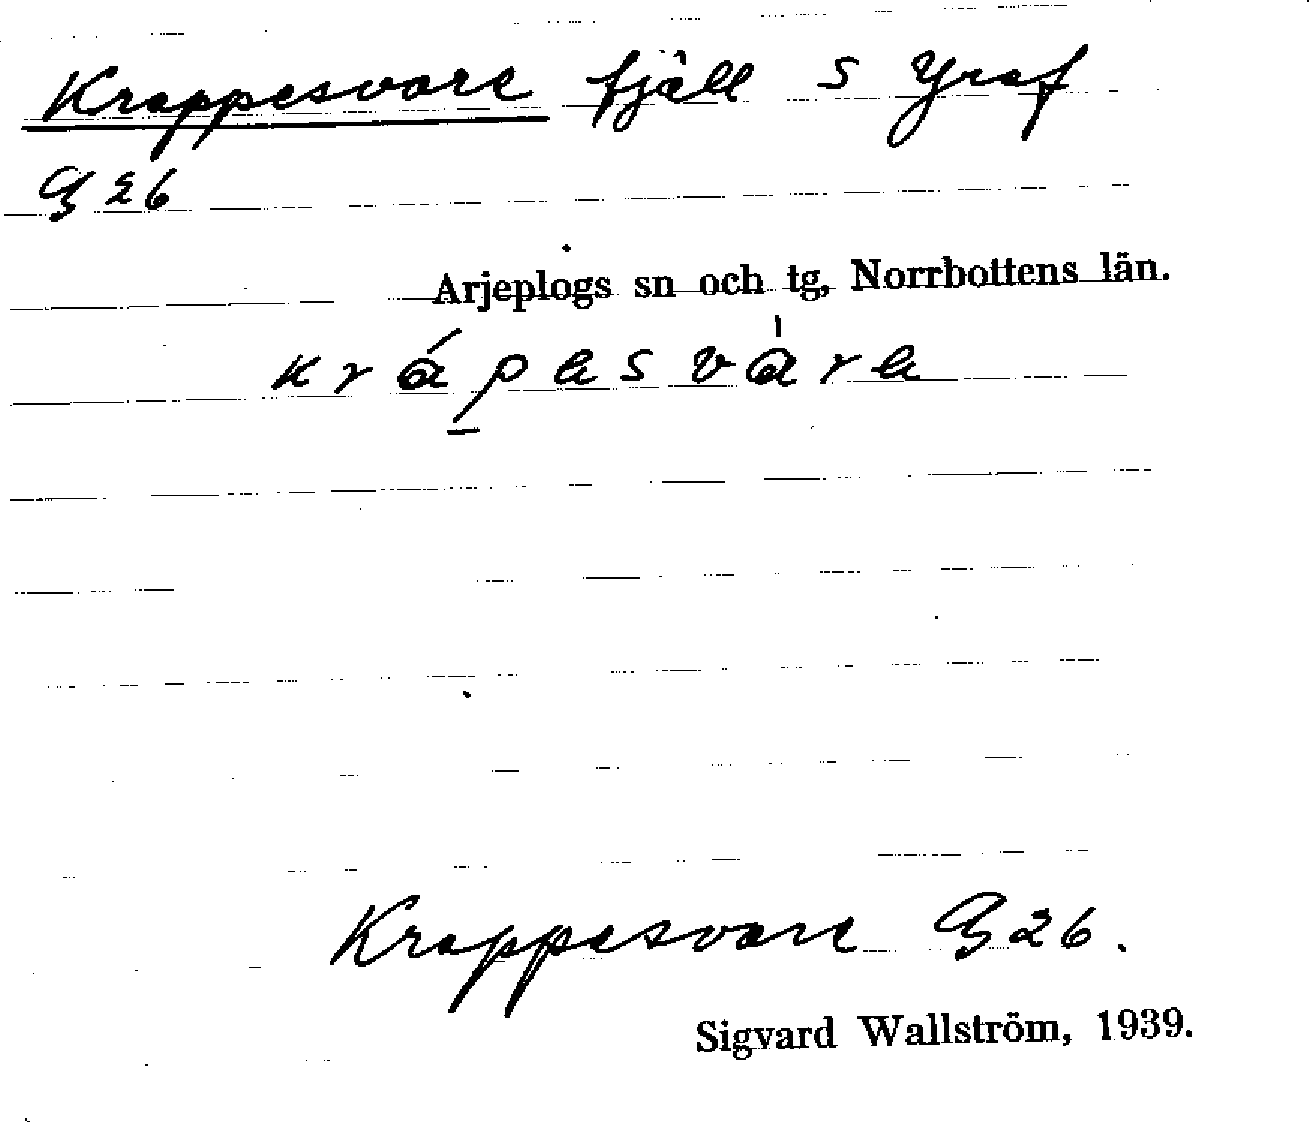 Krappesvare fjäll S Yraf
G 26
Arjeplogs sn och tg, Norrbottens län.
krápesvàre
Krappesvare G 26.
Sigvard Wallström, 1939.